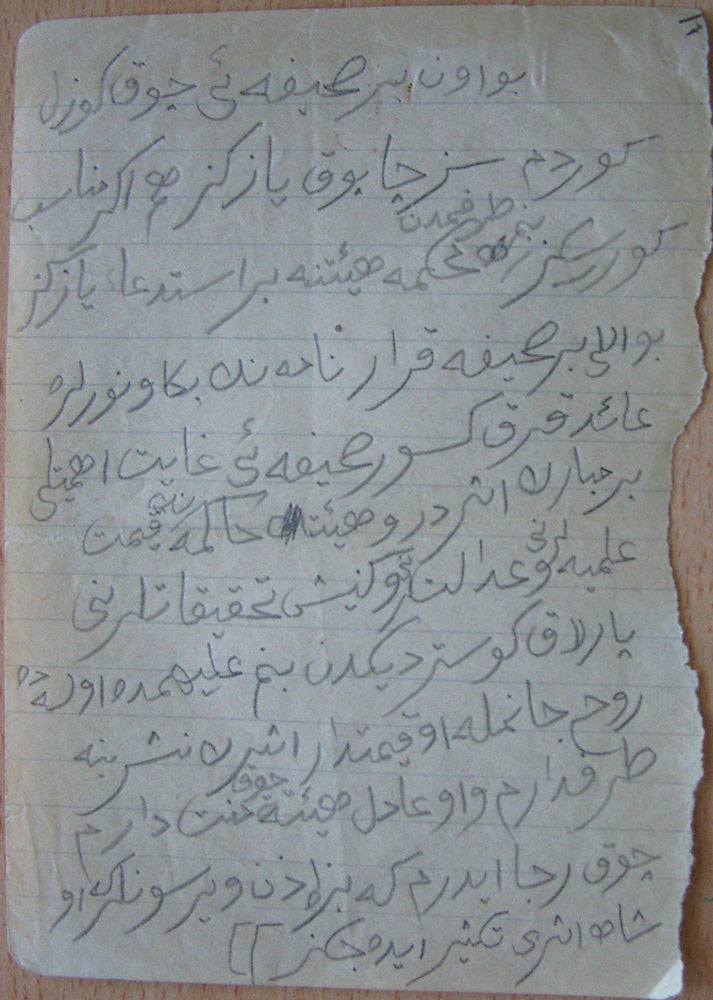 بو اون بر صحیفه ئی چوق گوزل
گوردم سز چابوق یازکز هم اگر مناسب
طرفمدن
گورسه کز بنم محکمه هیئتنه بر استدعا یازکز
بو اللی بر صحیفه قرارنامه ندن بکا و نورلره
عائد قرق کسور صحیفه ئی غایت اهمیتلی
بر مبارک اثردر و هیئت حاکمه نك قیمت
علمیه لرنی و عدالتلرنی و گنیش تحقیقاتلرنی
پارلاق گوستردیگندن بنم علیهمده اولسه ده
روح جانمله او قیمتدار اثرك نشرینه
طرفدارم و او عادل هیئته چوق منت دارم
چوق رجا ایدرم که بزه اذن ویرسونلر که او
شاه اثری تکثیر ایده جکز ]]